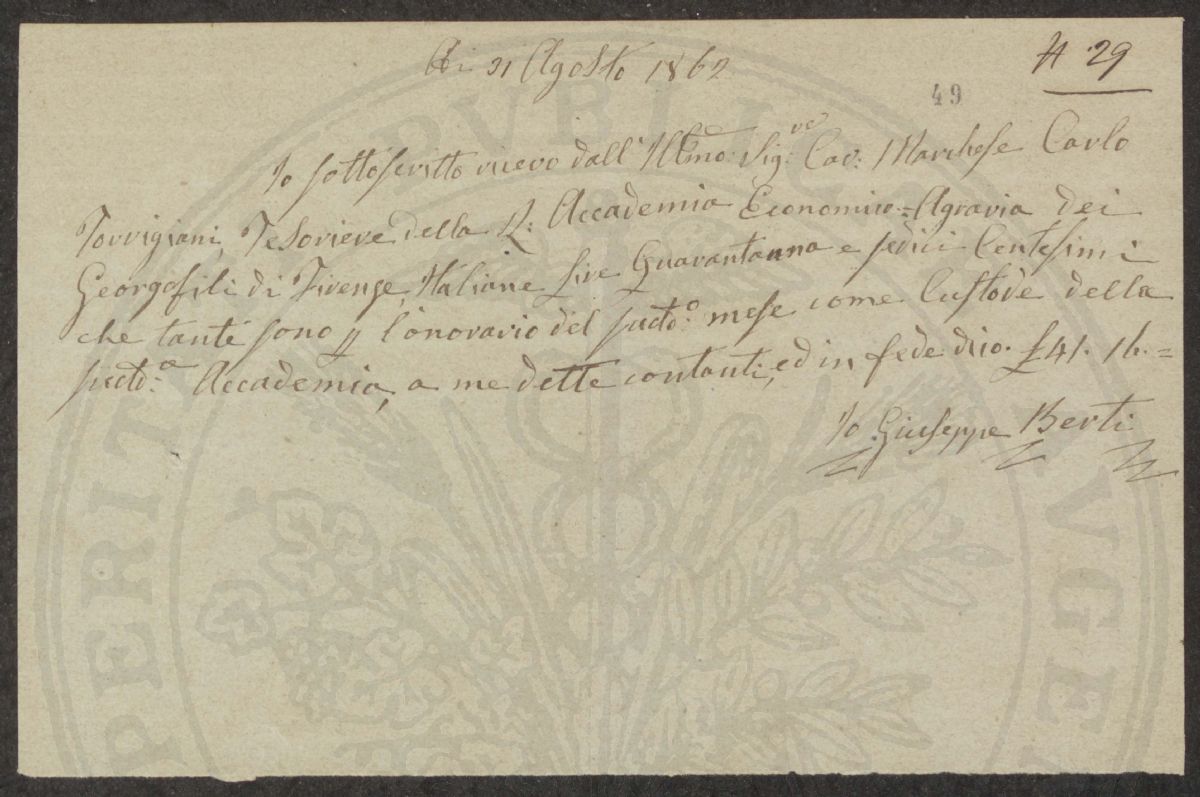 Adi 31 Agosto 1862
N 29
49
Io sottoscritto ricevo dall' Illmo: Sig:re Cav: Marchese Carlo
Torrigiani, Tesoriere della R: Accademia Economico=Agraria dei
Georgofili di Firenze, Italiane Lire Quarantanna e sedici Centesimi
che tanti sono p l'onorario del sudd:o mese come Custode della
sudd:a Accademia, a me dette contanti, ed in fede dico. £ 41. 16.=
Io Giuseppe Berti
PUBLICAE
PERITA
AUGE